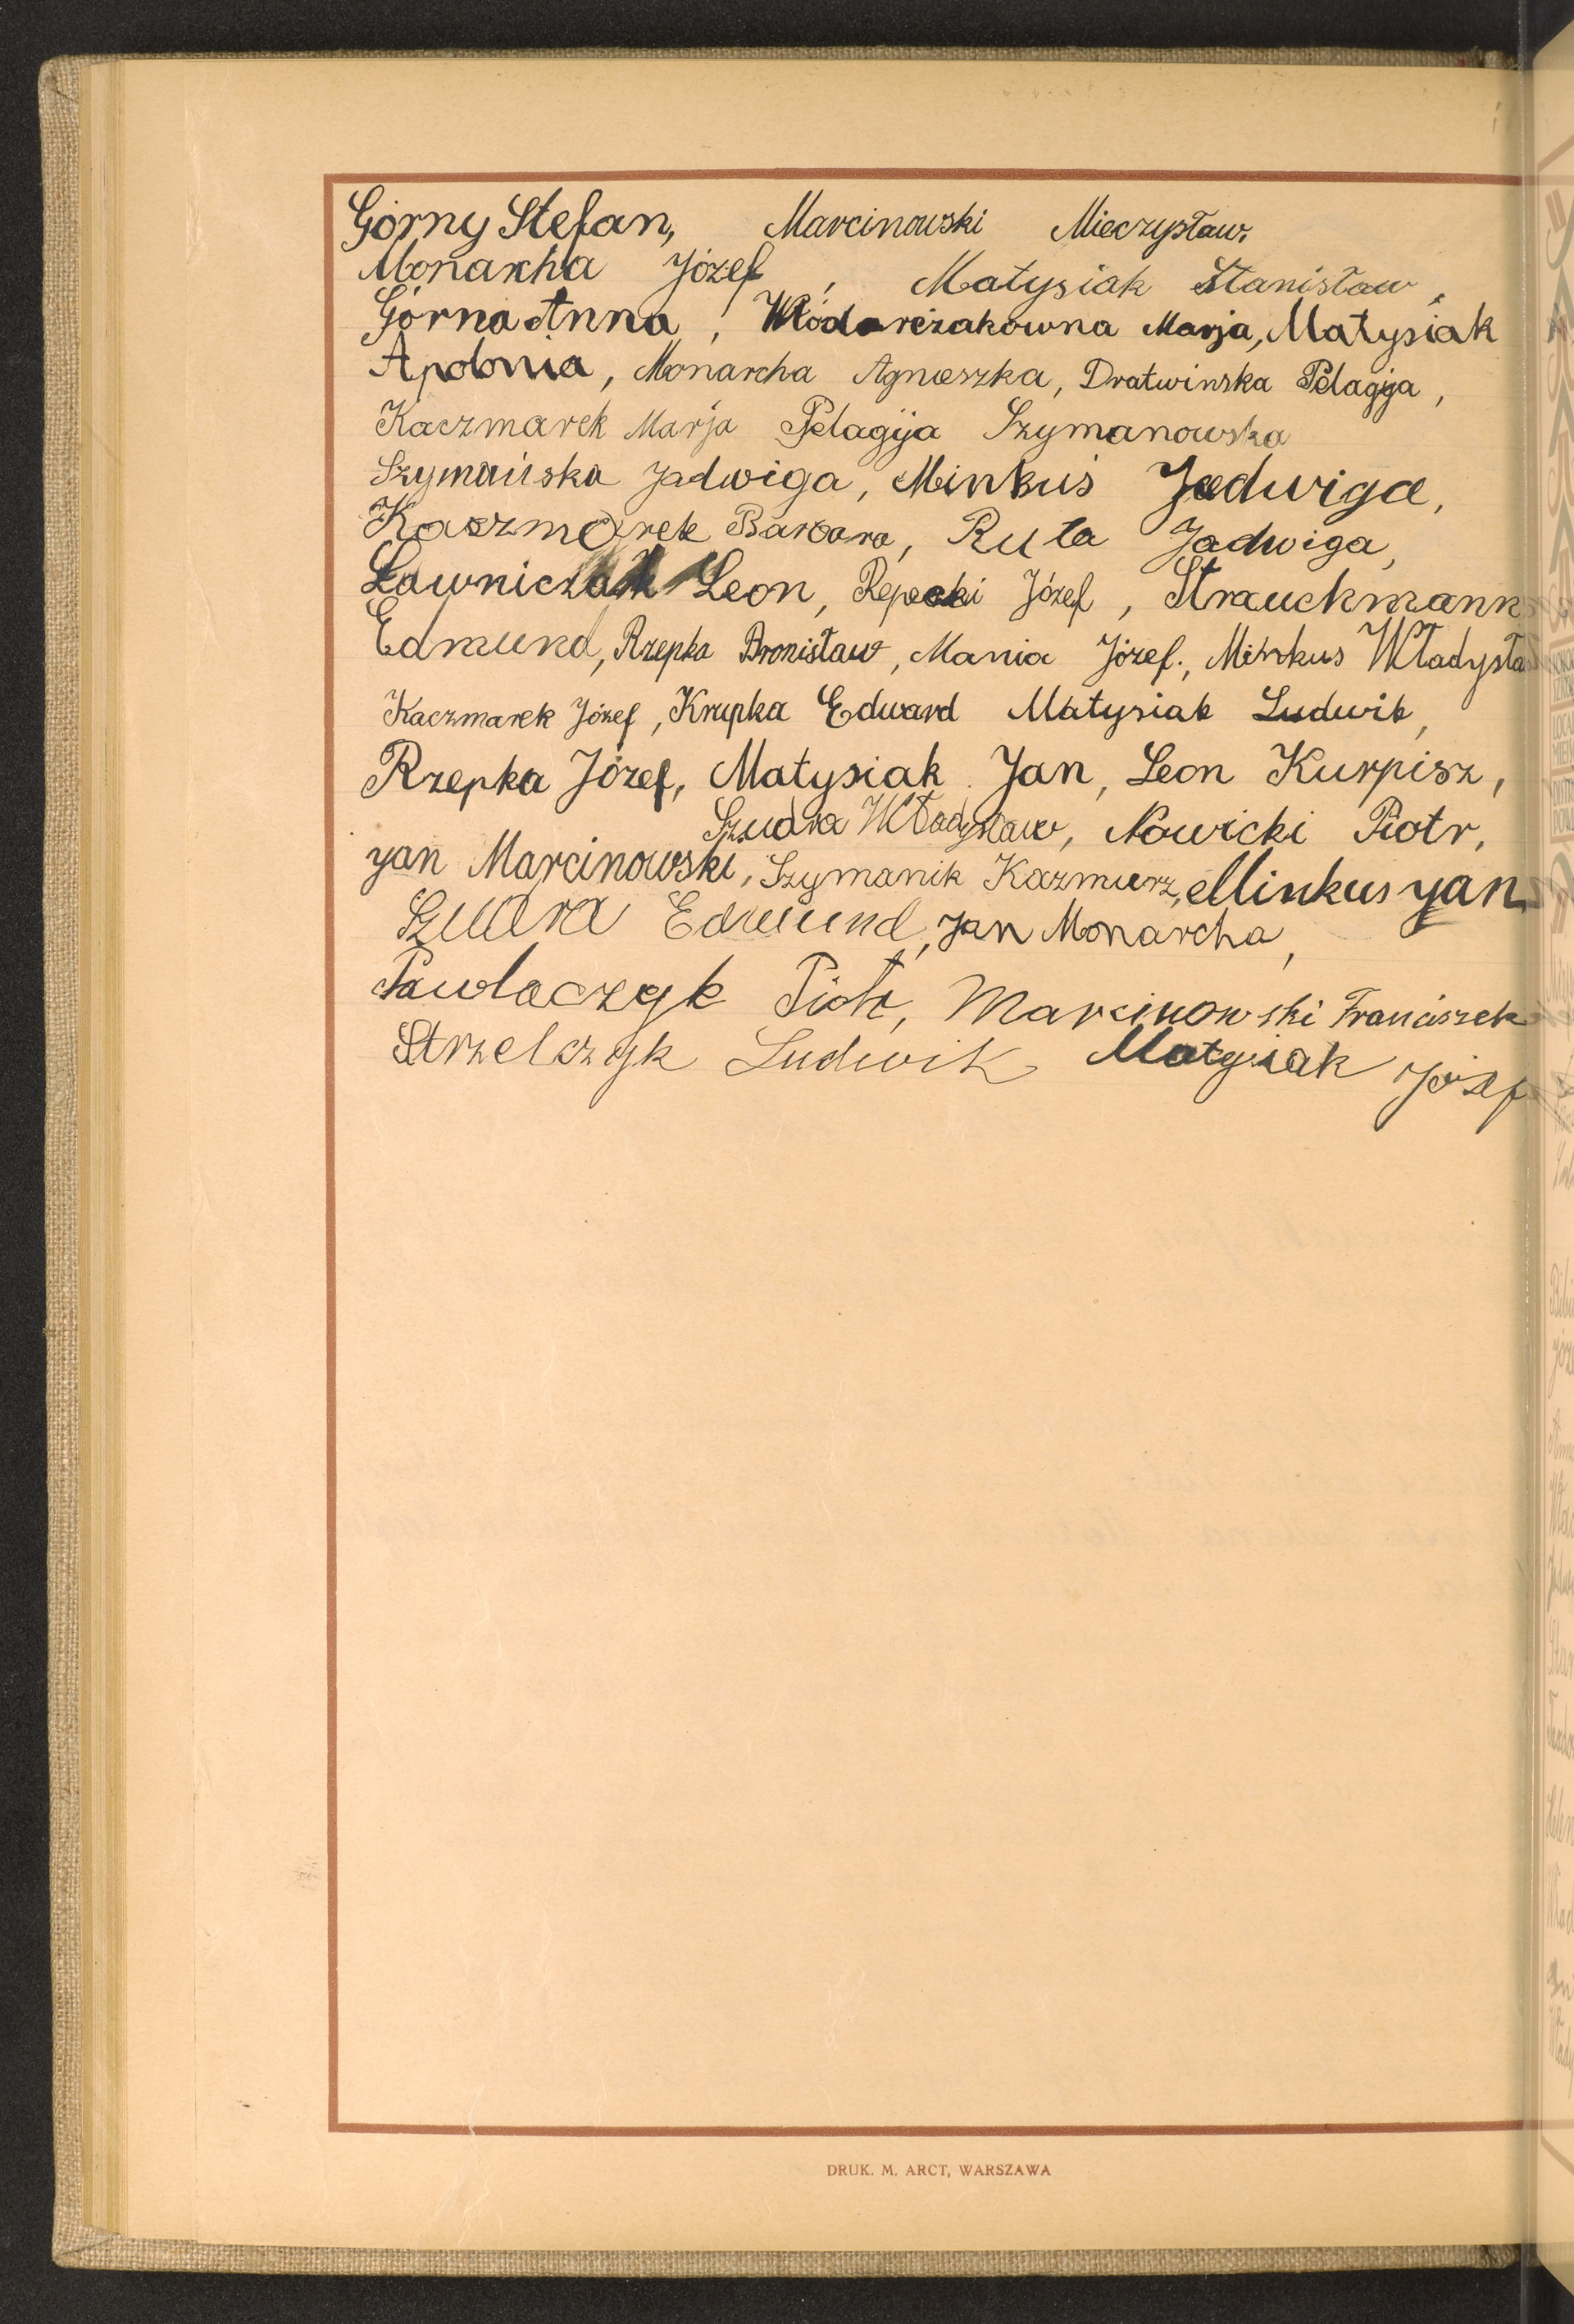 Górny Stefan, Marcinowski Mieczysław,
Monarcha Józef, Matysiak Stanisław,
Górna Anna, Włódarczakówna Marja, Matysiak
Apolonia, Monarcha Agnieszka, Dratwinska Pelagija,
Kaczmarek Marja Pelagija Szymanowska
Szymańska Jadwiga, Minkus Jadwiga,
Kaczmarek Barbara, Ruta Jadwiga,
Ławniczak Leon, Repecki Józef, Strauckmann
Edmund, Rzepka Bronisław, Mania Józef., Minkus Władysła
Kaczmarek Józef, Krupka Edward Matysiak Ludwik,
Rzepka Józef, Matysiak Jan, Leon Kurpisz,
Szudra Władysław, Nowicki Piotr,
Jan Marcinowski, Szymanik Kazmierz, Minkus Jan
Szudra Edmund, Jan Monarcha,
Pawlaczyk Piotr, Marcinowski Franciszek
Strzelczyk Ludwik Matysiak Józef
DRUK. M. ARCT, WARSZAWA